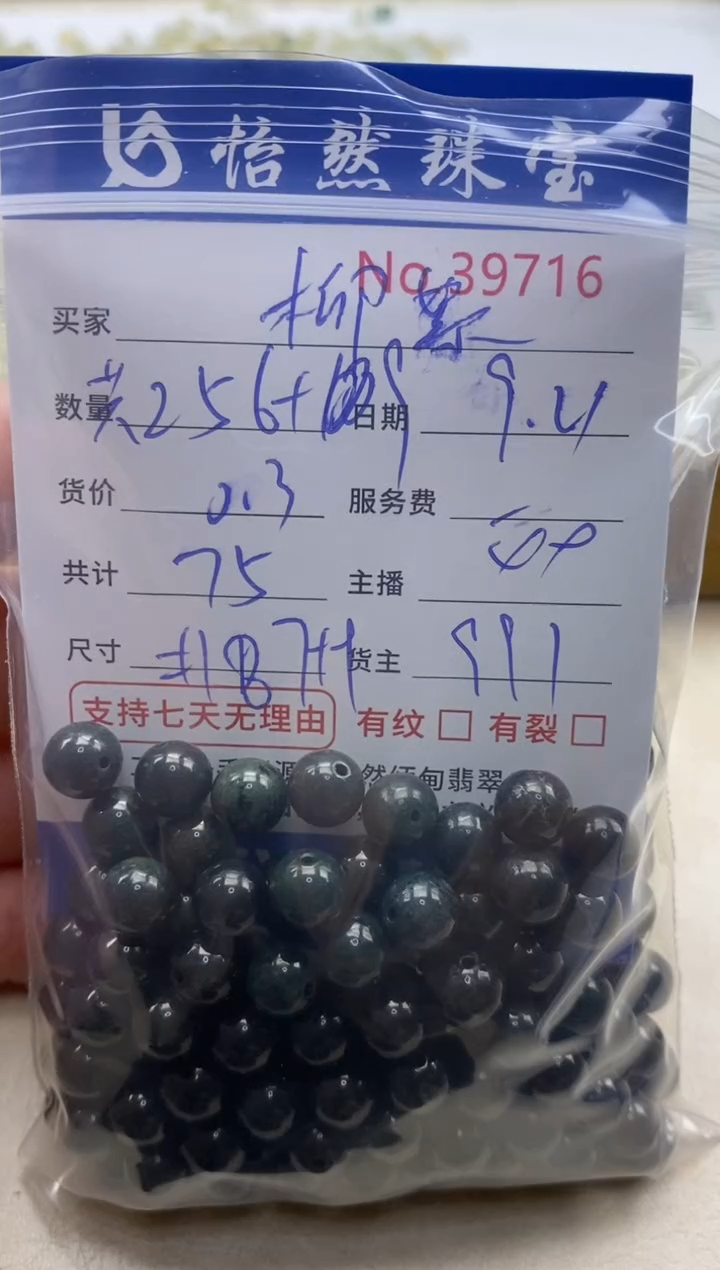 怡然珠宝
No.39716
买家 柳
数量 共256+ 日期 9.21
货价 0.3 服务费
共计 75 主播
尺寸 货主 991
支持七天无理由 有纹 □ 有裂 □
然缅甸翡翠